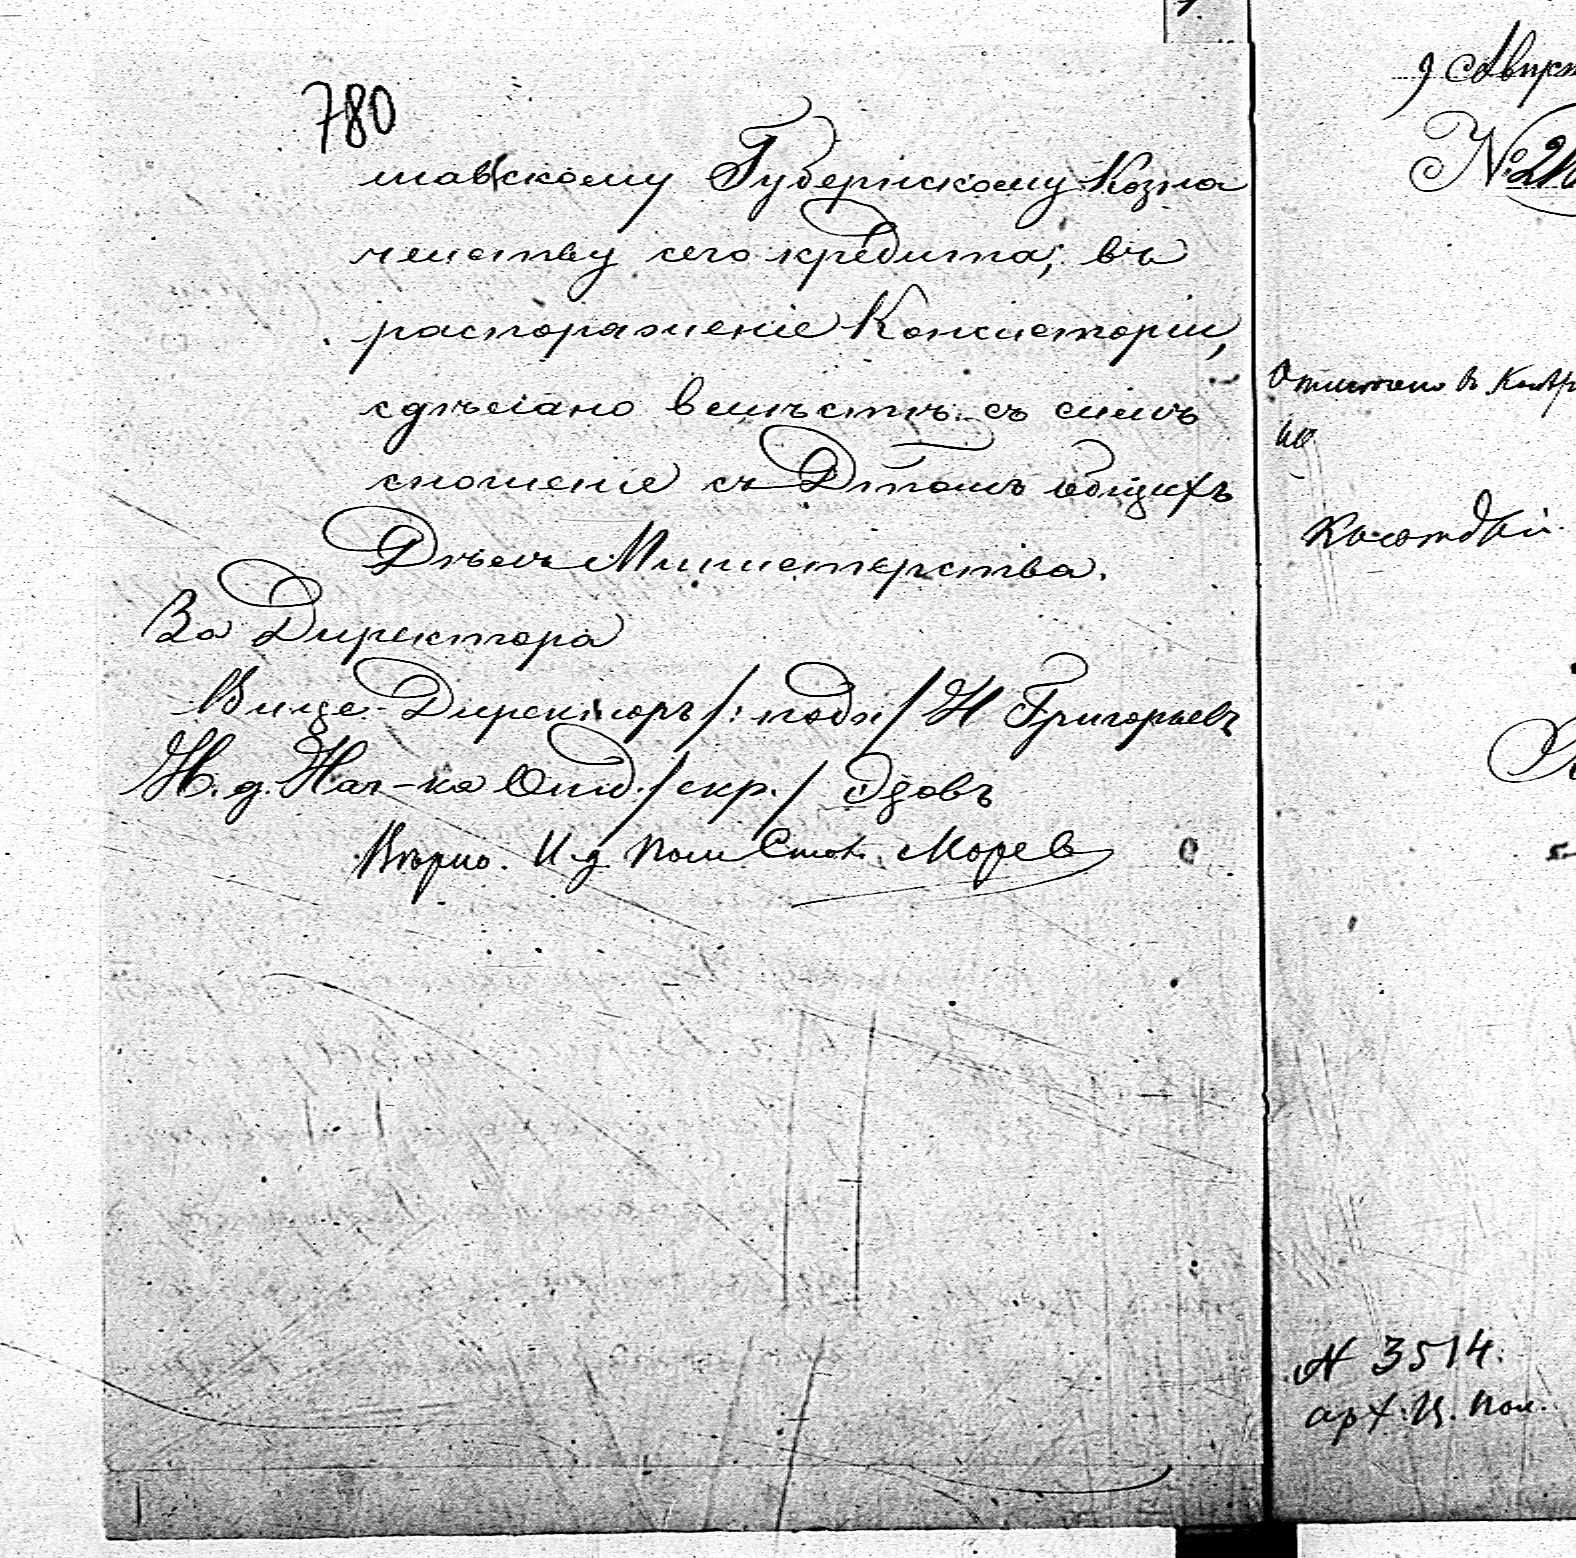 780
шавскому Губернскому Казна
чейству сего кредита, въ
распоряженіе Консисторіи,
сдѣлано вмѣстѣ съ симъ
сношеніе съ Д-томъ Общихъ
Дѣлъ Министерства.
За Директора
Вице-Директоръ /: подп / Н Григорьевъ
И. д. Нач-ка Отд. / скр. / Эзовъ
Вѣрно. И д Пом Стол. Морев
№ 3514.
арх. Ц. Пол.